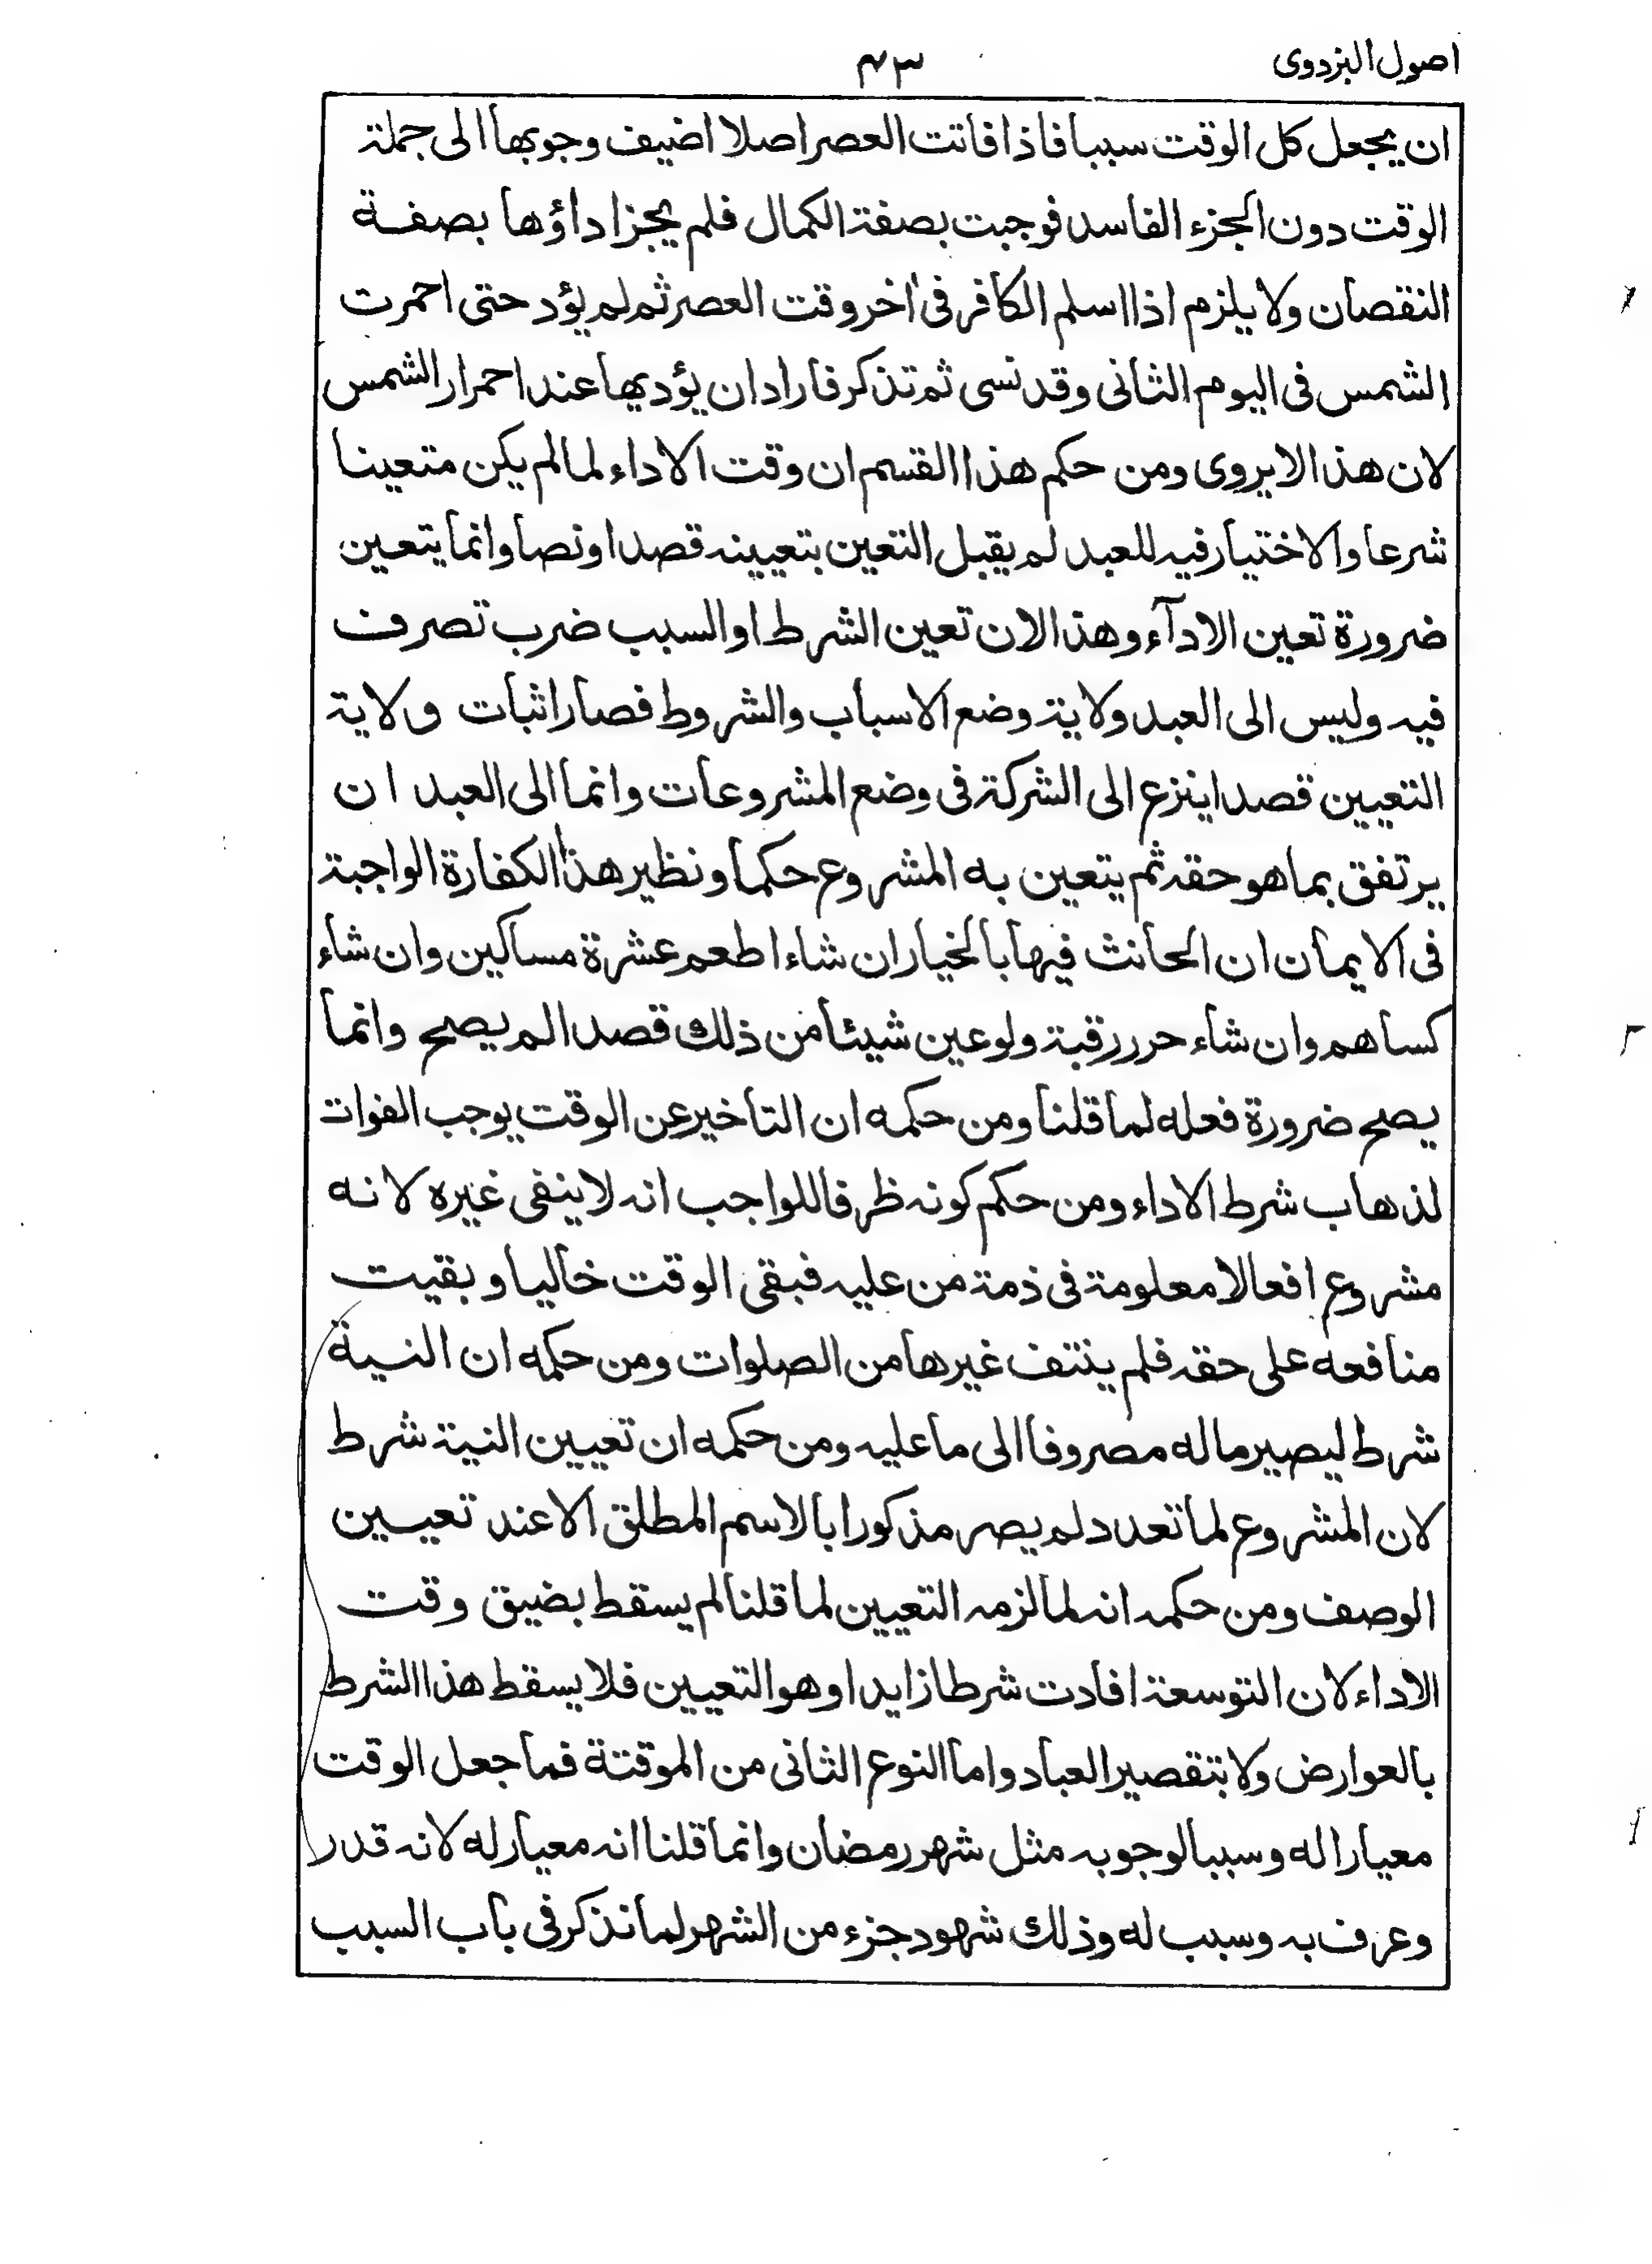 اصول البزدوى
٤٣
ان يجعل كل الوقت سببا فاذا فاتت العصر اصلا اضيف وجوبها الى جملة
الوقت دون الجزء الفاسد فوجبت بصفة الكمال فلم يجز اداؤها بصفة
النقصان ولا يلزم اذا اسلم الكافر فى اٰخر وقت العصر ثم لم يؤد حتى احمرت
الشمس فى اليوم الثانى وقد نسى ثم تذكر فاراد ان يؤديها عند احمرار الشمس
لان هذا لا يروى ومن حكم هذا القسم ان وقت الاداء لما لم يكن متعينا
شرعا والاختيار فيه للعبد لم يقبل التعين بتعيينه قصدا ونصا وانما يتعين
ضرورة تعين الادآء وهذا لان تعين الشرط او السبب ضرب تصرف
فيه وليس الى العبد ولاية وضع الاسباب والشروط فصار اثبات ولاية
التعيين قصدا ينزع الى الشركة فى وضع المشروعات وانما الى العبد ان
يرتفق بما هو حقه ثم يتعين به المشروع حكما ونظير هذا الكفارة الواجبة
فى الايمان ان الحانث فيها بالخيار ان شاء اطعم عشرة مساكين وان شاء
كساهم وان شاء حرر رقبة ولو عين شيئا من ذلك قصدا لم يصح وانما
يصح ضرورة فعله لما قلنا ومن حكمه ان التاخير عن الوقت يوجب الفوات
لذهاب شرط الاداء ومن حكم كونه ظرفا للواجب انه لا ينفى غيره لانه
مشروع افعالا معلومة فى ذمة من عليه فبقى الوقت خاليا وبقيت
منافعه على حقه فلم ينتف غيرها من الصلوات ومن حكمه ان النية
شرط ليصير ما له مصروفا الى ما عليه ومن حكمه ان تعيين النية شرط
لان المشروع لما تعدد لم يصر مذكورا بالاسم المطلق الا عند تعيين
الوصف ومن حكمه انه لما لزمه التعيين لما قلنا لم يسقط بضيق وقت
الاداء لان التوسعة افادت شرطا زايدا وهو التعيين فلا يسقط هذا الشرط
بالعوارض ولا بتقصير العباد واما النوع الثانى من الموقتة فما جعل الوقت
معيارا له وسببا لوجوبه مثل شهر رمضان وانما قلنا انه معيار له لانه قدر
وعرف به وسبب له وذلك شهود جزء من الشهر لما نذكر فى باب السبب